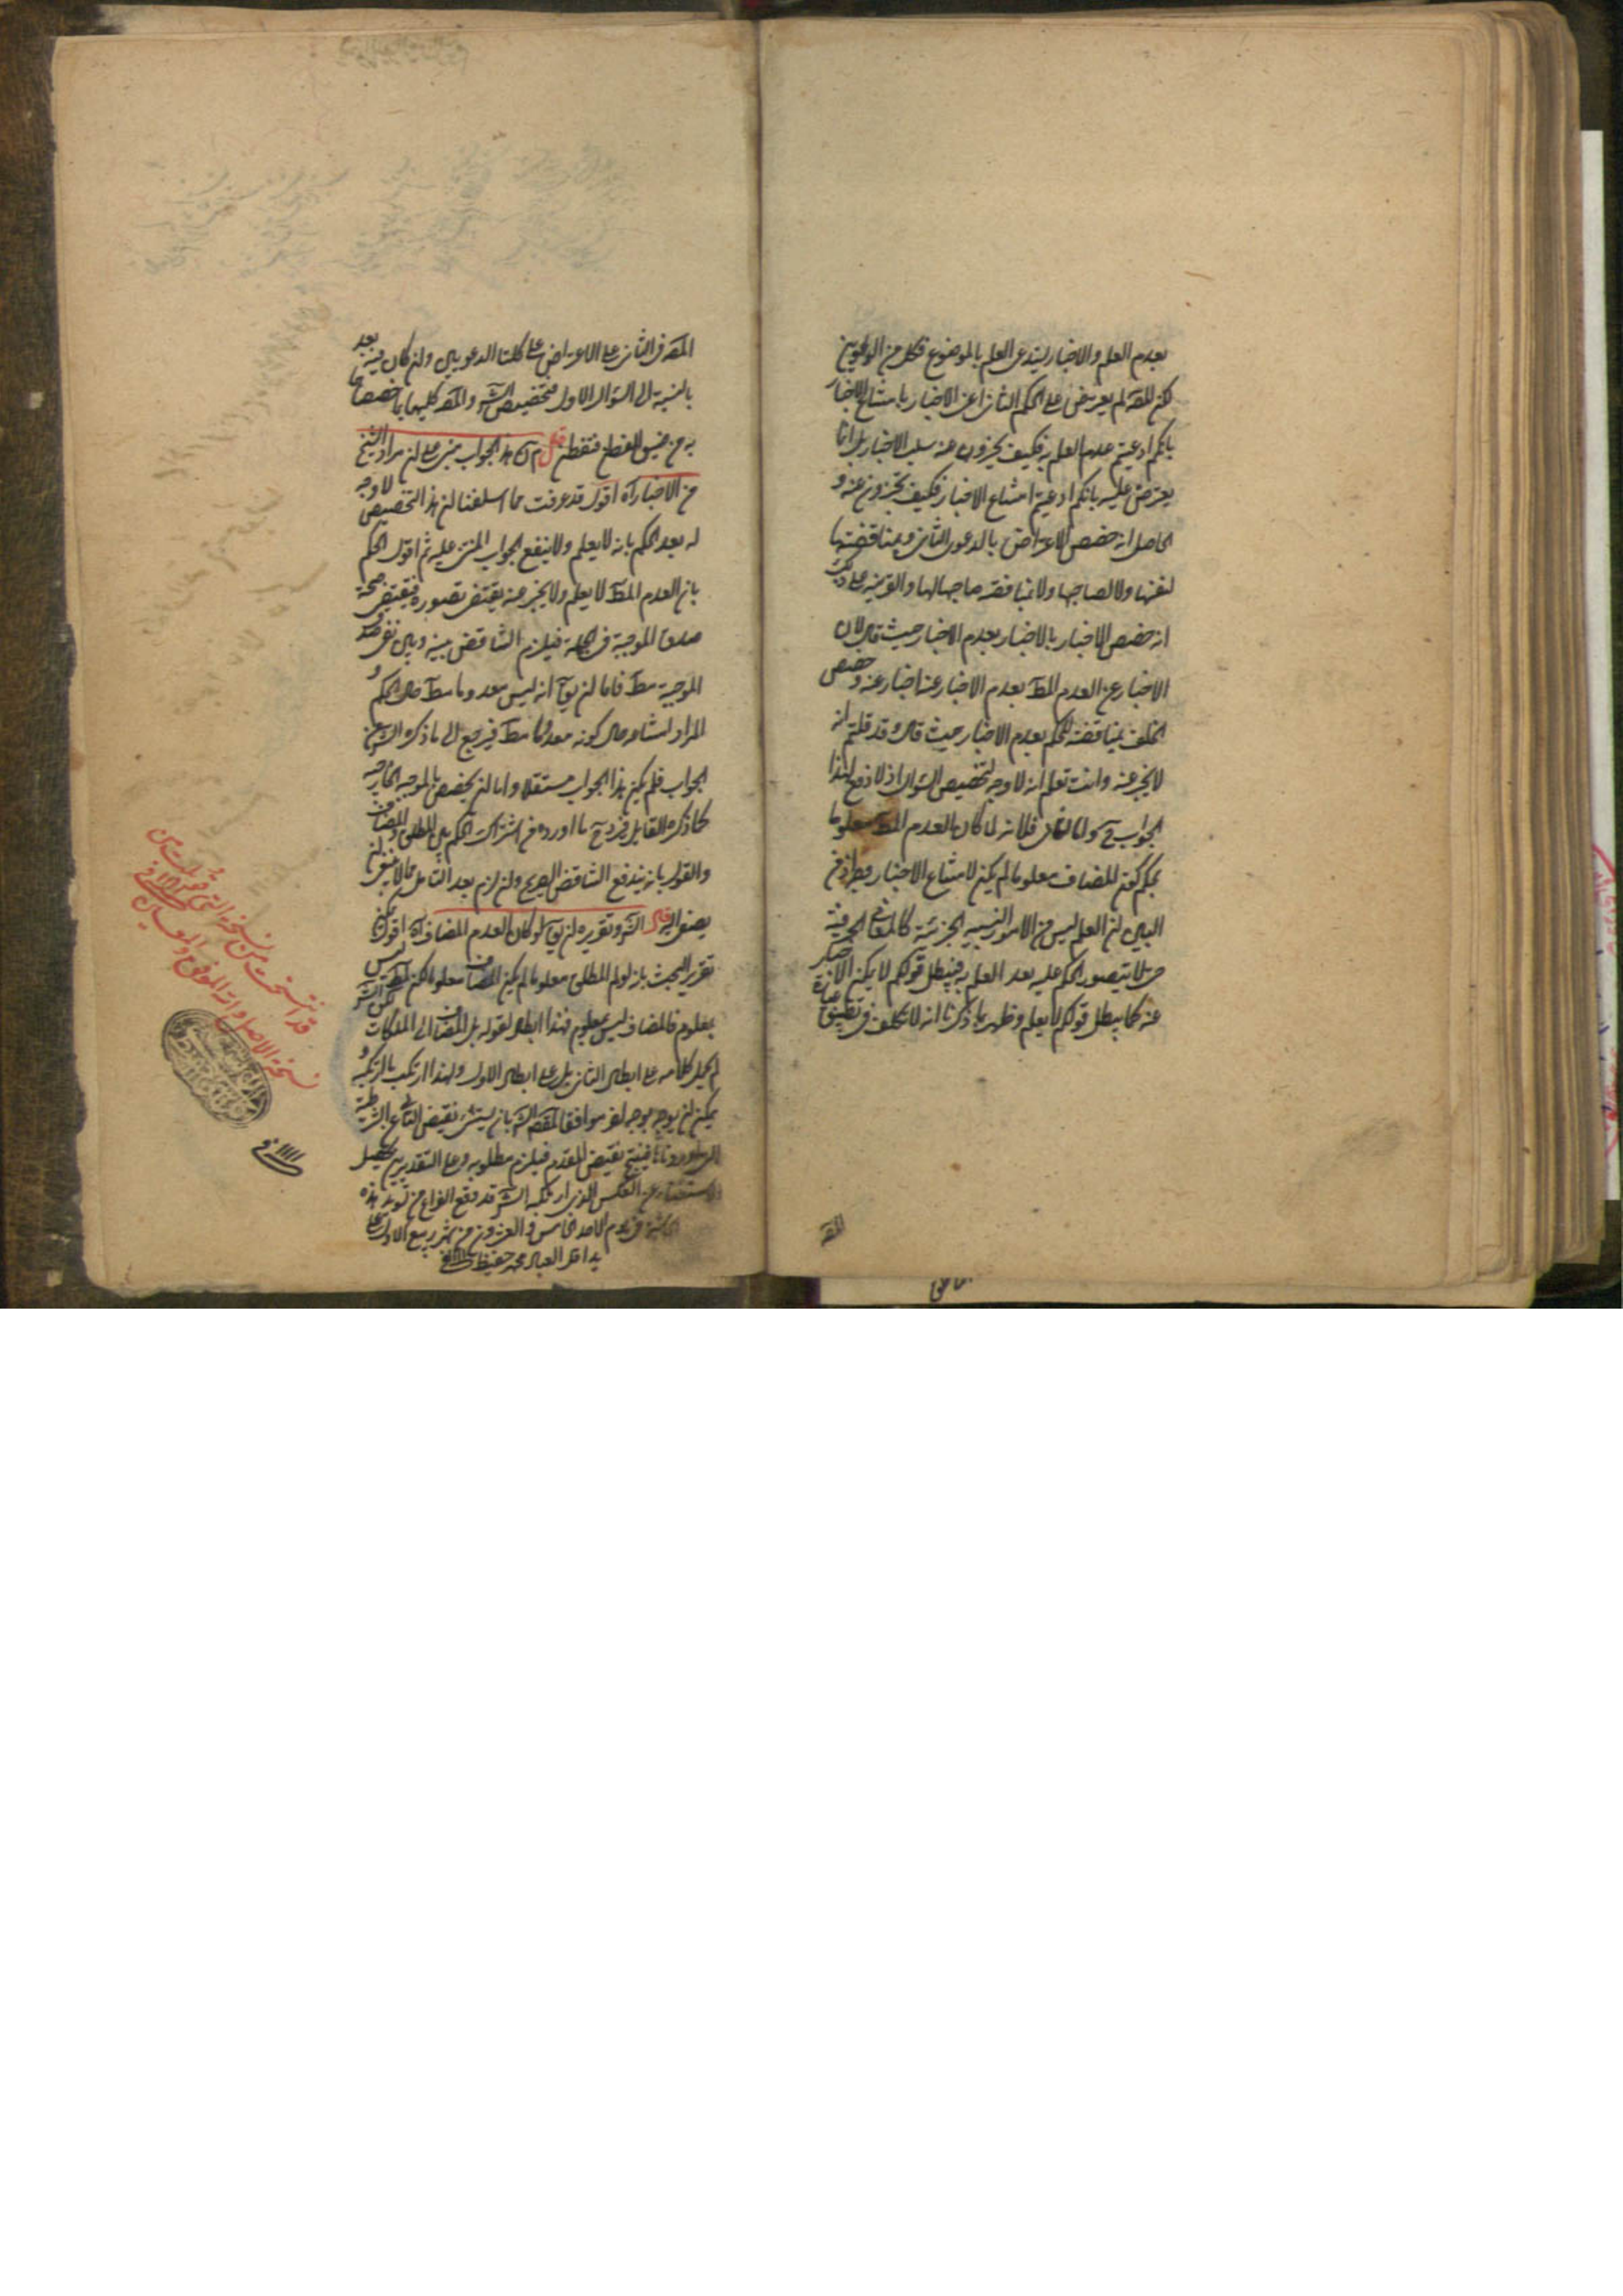 بعدم العلم والاخبار يستدعى العلم بالموضوع فكل من الدعويين
لكن المصـ لم يعترض على الحكم الثانى اعنى الاخبار بامتناع الاخبار
بانكم ادعيتم عدم العلم به فكيف تخبرون عنه بسلب الاخبار بل انما
يعترض عليه بانكم ادعيتم امتناع الاخبار فكيف تخبرون عنه و
الحاصل انه خصص الاعتراض بالدعوى الثانى وبمناقضتها
لنفسها ولا لصاحبها ولا بمناقضة صاحبها لها والقرينة على ذلك
انه خصص الاخبار بالاخبار بعدم الاخبار حيث قال لان
الاخبار عن العدم المط بعدم الاخبار عنه اخبار عنه وخصص
الخلف بمناقضة الحكم بعدم الاخبار حيث قال وقد قلتم انه
لا يخبر عنه وانت تعلم انه لا وجه لتخصيص السؤال اذ لا دفع لهذا
الجواب ح واما الثانى فلانه لما كان العدم المط معلوما
بحكم كون المضاف معلوما لم يكن لامتناع الاخبار
البين ان العلم ليس من الامور النسبية الجزئية كالمعانى الحرفية
حتى لا يتصور الحكم عليه بعد العلم به فيبطل قولكم لا يمكن الاخبار
عنه كما يبطل قولكم لا يعلم وظهر بما ذكرنا انه لا تكلف فى تطبيق عبارة
المصـ
المصـ فى الثانى على الاعتراض على كلتا الدعويين وان كان فيه بعد
بالنسبة الى السؤال الاول فتخصيص الشـ والمصـ كليهما بما خصصا
به من ضيق العطن فتفطن قال م ان هذا الجواب مبنى على ان مراد الشيخ
من الاخبار آه اقول قد عرفت مما اسلفنا ان هذا التخصيص لا وجه
له بعد الحكم بانه لا يعلم ولا ينفع الجواب المبنى عليه ثم اقول الحكم
بان العدم المط لا يعلم ولا يخبر عنه يقتضى تصوره فيقتضى صحة
صدق الموجبة فى الجملة فيلزم التناقض بينه وبين نفى صدق
الموجبة مط فاما ان يق انه ليس معدوما مط حال الحكم و
المراد امتناعه حال كونه معدوما مط فيرجع الى ما ذكره الشـ من
الجواب فلم يكن هذا الجواب مستقلا واما ان يخصص بالموجبة الخارجية
كما ذكره القايل فيرد ح ما اورده من اشتراك الحكم بين المطلق والمضاف
والقول بانه يندفع التناقض الصريح وان لزم بعد التامل مما لا ينبغى ان
يصغى اليه قال الشـ وتقريره ان يق لو كان العدم المضاف آه اقول يمكن
تقرير البحث بانه لو لم المطلق معلوما لم يكن المضاف معلوما لكن المط ليس
بمعلوم فالمضاف ليس بمعلوم فهذا ابطال لقوله بل المضاف الى الملكات لكن الشـ
لم يحمل كلامه على ابطال الثانى بل على ابطال الاول ولهذا ارتكب ما ارتكبه و
يمكن ان يوجه بوجه اخر موافقا لمقصد الشـ بان يستثنى نقيض التالى من الشرطية
التى اوردناها فينتج نقيض المقدم فيلزم مطلوبه وعلى التقديرين يحصل
الاستغناء عن العكس الذى ارتكبه الشـ قد وقع الفراغ من تسويد هذه
الحاشية فى يوم الاحد خامس والعشرون من شهر ربيع الاول على
يد اقل العباد محمد حفيظ
قد انتسخت من نسخة التى قوبلت من
نسخة الاصل والله الموفق والمعين